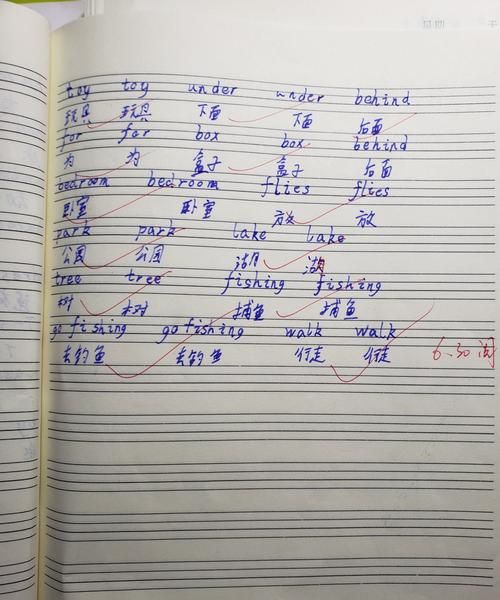 toy toy under under behind
玩具 玩具 下面 下面 后面
for for box box behind
为 为 盒子 盒子 后面
bedroom bedroom flies flies
卧室 卧室 放 放
park park lake lake
公园 公园 湖 湖
tree tree fishing fishing
树 树 捕鱼 捕鱼
go fishing go fishing walk walk
去钓鱼 去钓鱼 行走 行走 6.30阅